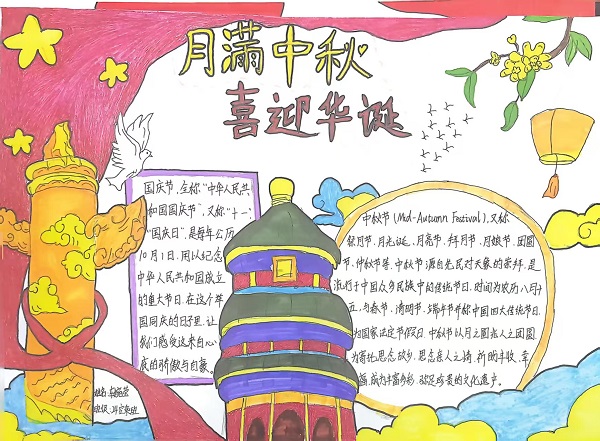 月满中秋
喜迎华诞
国庆节,全称"中华人民共
和国国庆节",又称"十一"
"国庆日",是每年公历
10月1日,用以纪念
中华人民共和国成立
的重大节日.在这个举
国同庆的日子里,让
我们感受这来自心
底的骄傲与自豪。
中秋节(Mid-Autumn Festival),又称
祭月节、月光诞、月亮节、拜月节、月娘节、团圆
节、仲秋节等.中秋节源自先民对天象的崇拜,是
流行于中国众多民族中的传统节日.时间为农历八月十
五,与春节、清明节、端午节并称中国四大传统节日.
为国家法定节假日.中秋节以月之圆兆人之团圆
为寄托思念故乡,思念亲人之情,祈盼丰收、幸
福,成为丰富多彩、弥足珍贵的文化遗产。